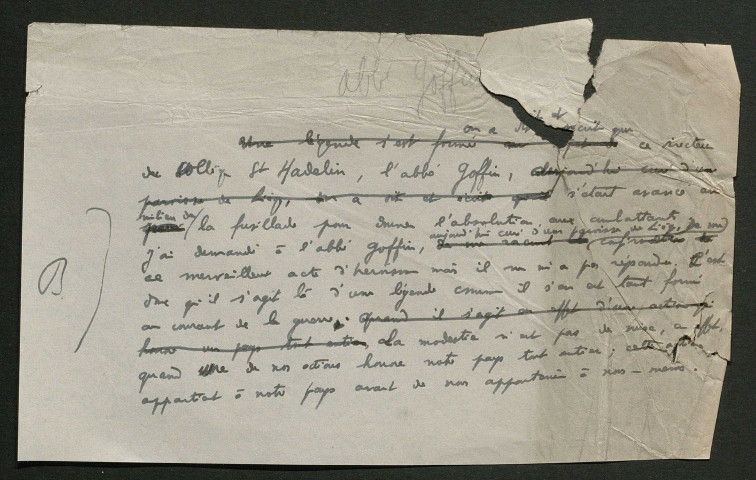 abbé Goffin
on a dit et écrit que
Une légende s'est formée au sujet de ce directeur
du Collège St Hadelin, l'abbé Goffin, aujourd'hui curé d'une
paroisse de Liège, on a dit et écrit qu'il s'était avancé au
milieu de
la fusillade pour donner l'absolution aux combattants.
aujourd'hui curé d'une paroisse de Liège, de me
J'ai demandé à l'abbé Goffin, de me raconter confirmer
ce merveilleux acte d'héroïsme mais il ne m'a pas répondu. C'est
donc qu'il s'agit là d'une légende comme il s'en est tout formé
au courant de la guerre. Quand il s'agit en effet d'une action qui
honore un pays tout entier, la modestie n'est pas de mise, en effet,
quand une de nos actions honore notre pays tout entier, cette action
appartient à notre pays avant de nous appartenir à nous-mêmes.
B